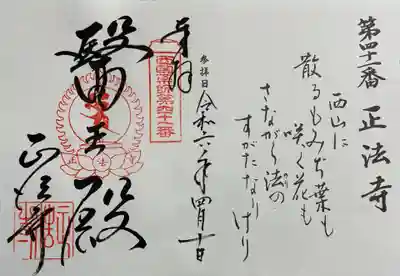 第四十一番 正法寺
西山に
散るもみぢ葉も
咲く花も
さながら法の
すがたなりけり
参拝日 令和六年四月十日
奉拝
西國薬師第四十一番
醫王殿
正法寺